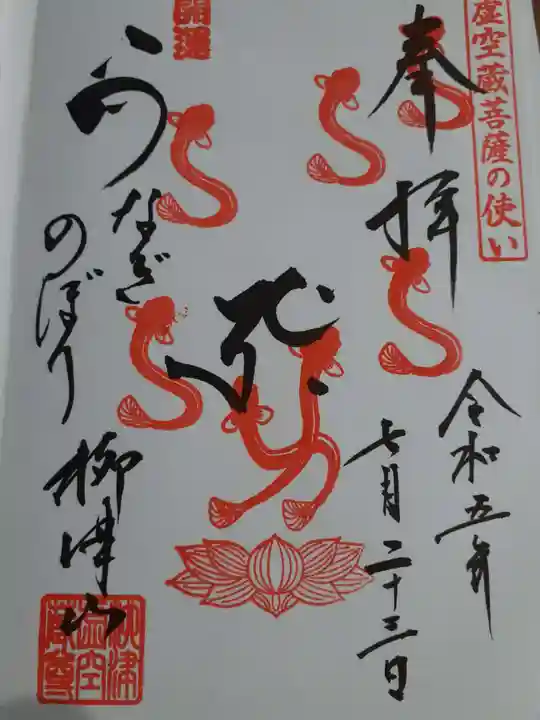 虚空蔵菩薩の使い
奉拝
令和五年
七月二十三日
開運
うなぎ
のぼり
柳津山
柳津
虚空
蔵尊